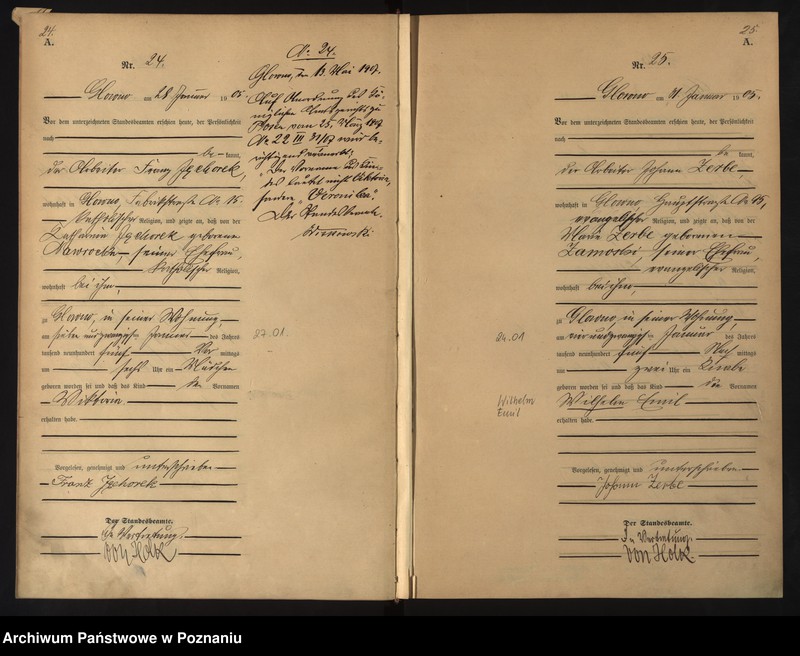 24.
A.
Nr. 24.
Glowno am 28 Januar 1905.
Vor dem unterzeichneten Standesbeamten erschien heute, der Persönlichkeit
nach
be kannt,
der Arbeiter Franz
wohnhaft in Glowno, Fabrikstraße No 15.
katholischer Religion, und zeigte an, daß von der
Katharina geborene
Nawrocka seiner Ehefrau,
katholischer Religion,
wohnhaft bei ihm,
zu Glowno, in seiner Wohnung,
am sieben und zwanzigsten Januar des Jahres
tausend neunhundert fünf Vor mittags
um sechs Uhr ein Mädchen
geboren worden sei und daß das Kind den Vornamen
Wiktoria
erhalten habe.
Vorgelesen, genehmigt und unterschrieben
Franz
Der Standesbeamte.
In Vertretung
von Holk
No 24.
Glowno, den 13. Mai 1907.
Auf Anordnung des Kö-
niglichen Amtsgerichts zu
Posen vom 25. März 1907
No 22 III 31/07 wird be-
richtigend vermerkt:
"Der Vorname des Kin-
des lautet nicht Viktoria,
sondern "Veronika".
Der Standesbeamte.
27.01.
25.
A.
Nr. 25.
Glowno am 31 Januar 1905.
Vor dem unterzeichneten Standesbeamten erschien heute, der Persönlichkeit
nach
be kannt,
der Arbeiter Johann Zerbe
wohnhaft in Glowno Hauptstraße No 45,
evangelischer Religion, und zeigte an, daß von der
Maria Zerbe geborenen
Zamorski, seiner Ehefrau,
evangelischer Religion,
wohnhaft bei ihm,
zu Glowno, in seiner Wohnung,
am vier und zwanzigsten Januar des Jahres
tausend neunhundert fünf Nach mittags
um zwei Uhr ein Knabe
geboren worden sei und daß das Kind die Vornamen
Wilhelm Emil
erhalten habe.
Vorgelesen, genehmigt und unterschrieben
Johann Zerbe
Der Standesbeamte.
In Vertretung.
von Holk.
24.01
Wilhelm
Emil
Archiwum Państwowe w Poznaniu